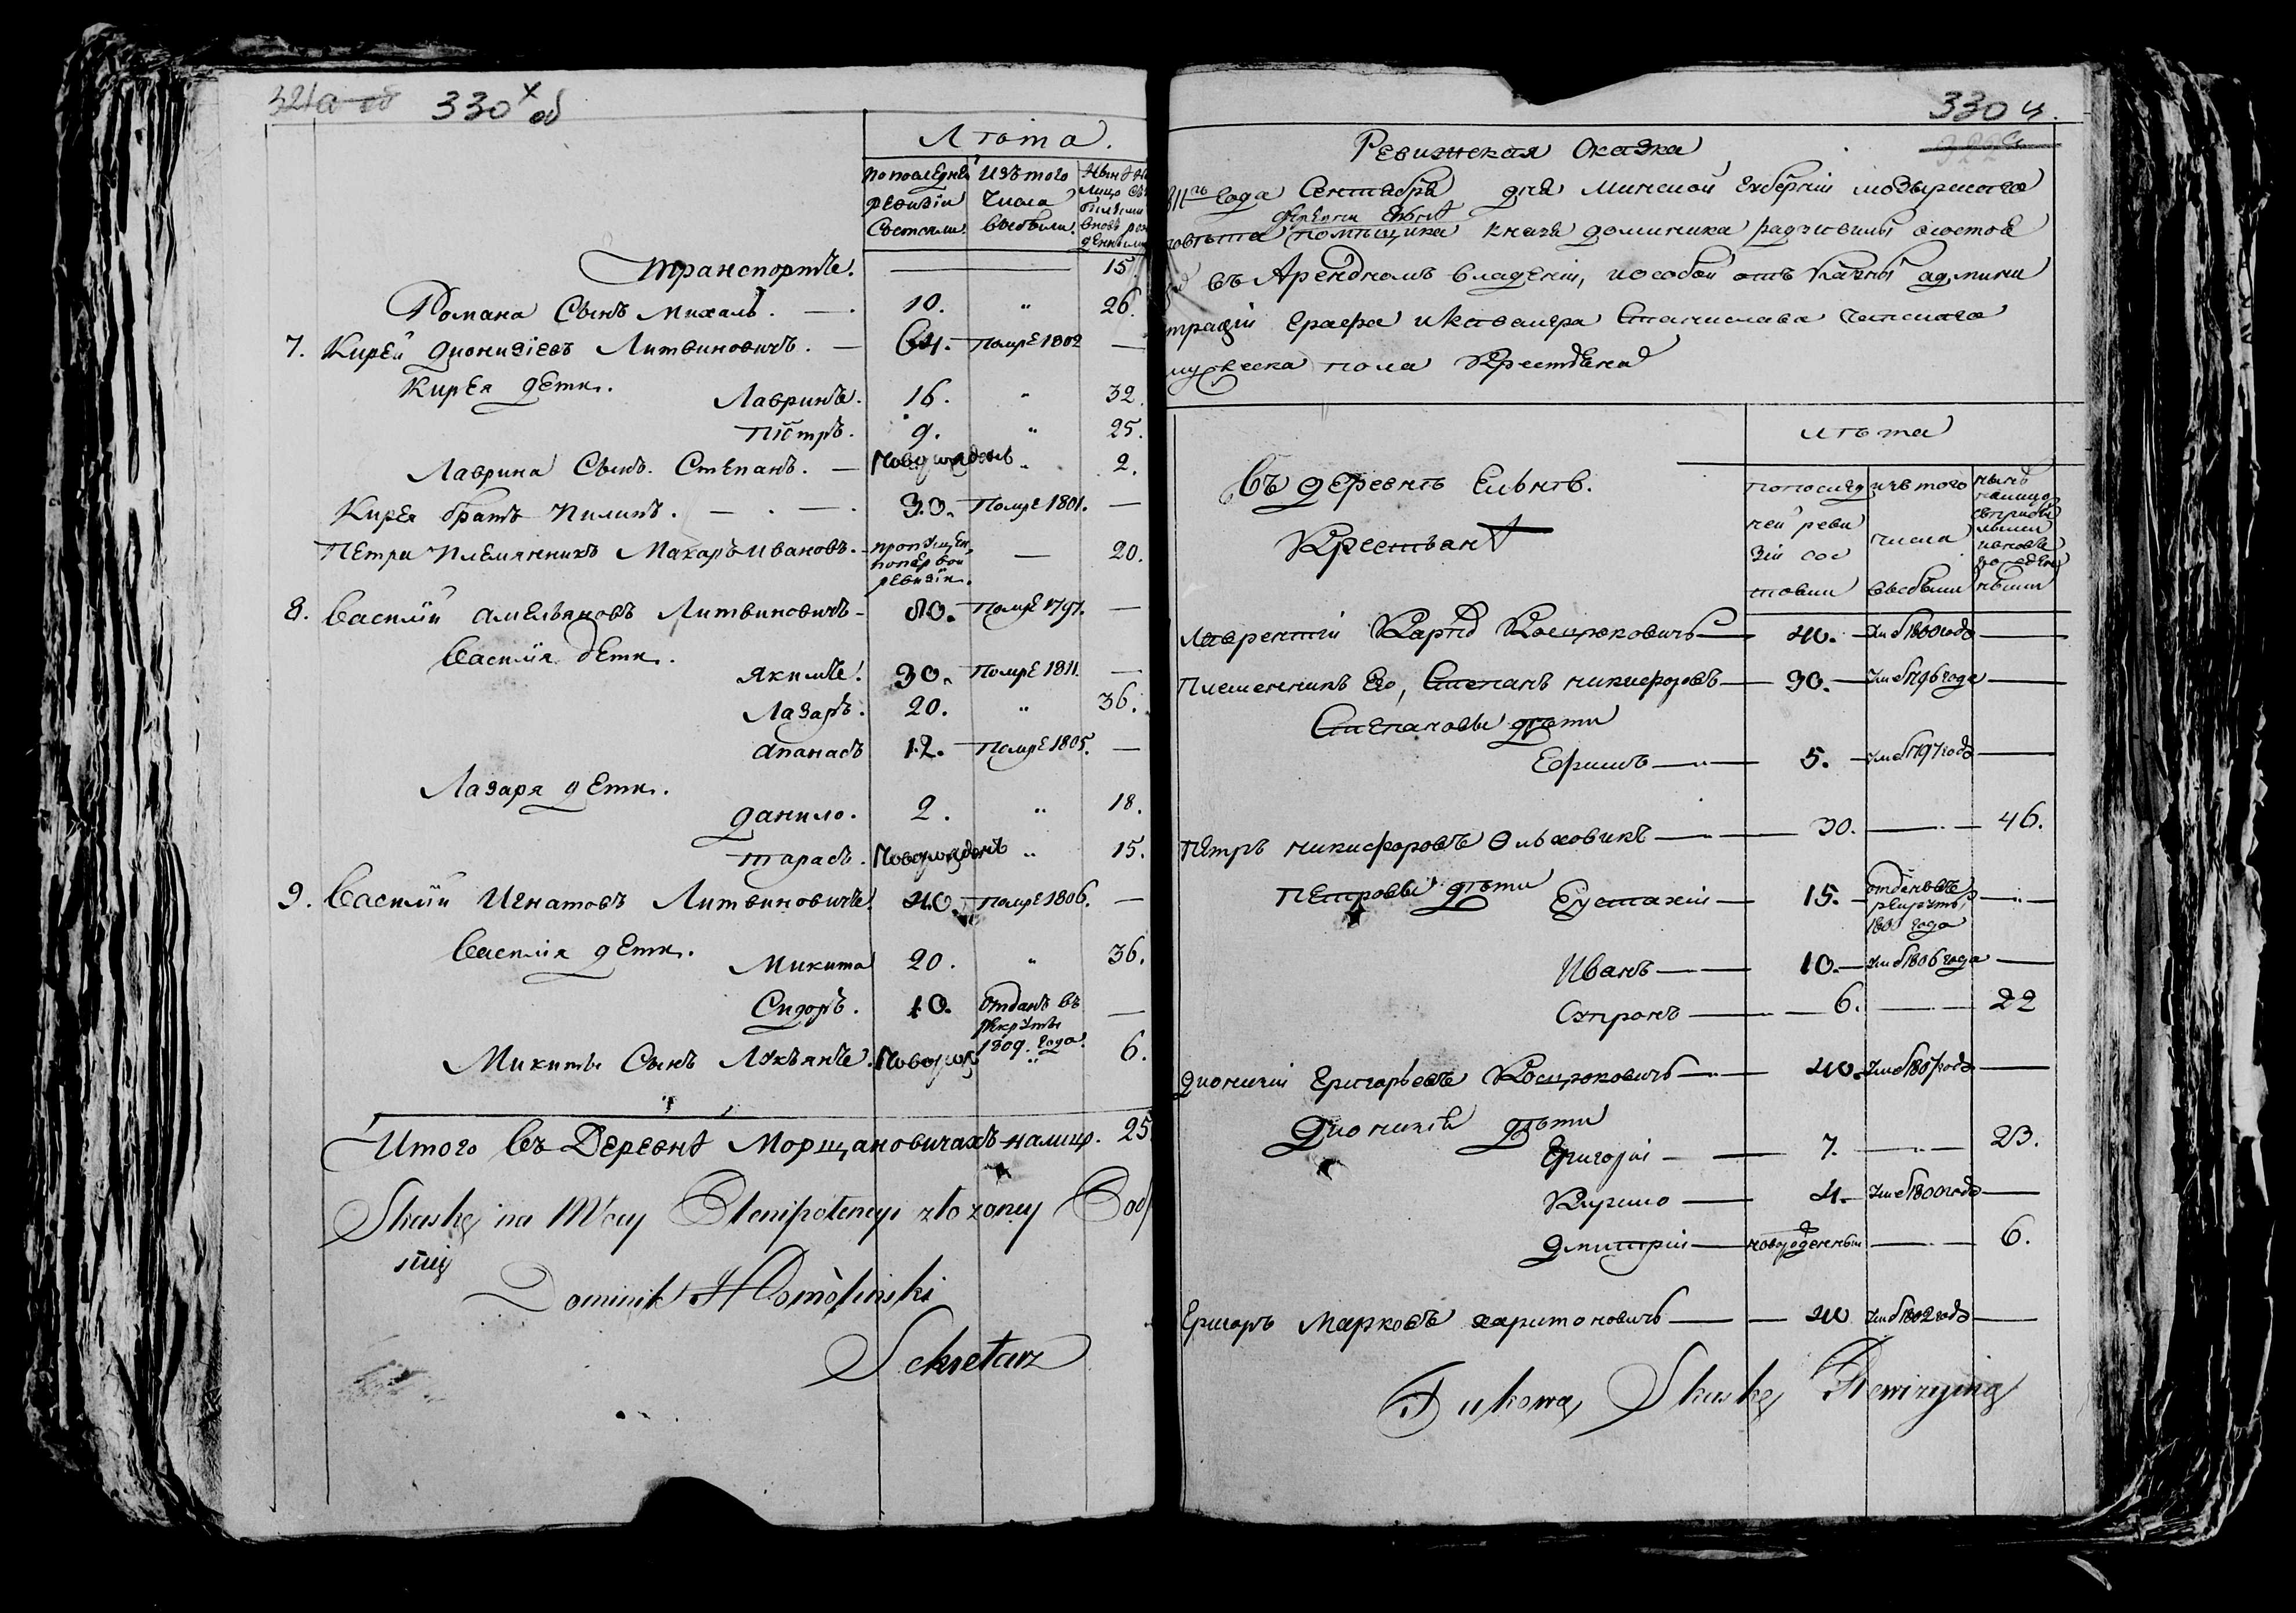 321а об 330ˣ об
Лѣта.
По последней ревизіи Состояли
Изъ того Числа Выбыли.
Транспортъ. — 15.
Романа Сынъ Михалъ. — 10. " 26.
7. Кирей Дионизіевъ Литвиновичъ. — 64. Помре 1802 —
Кирея дети.
Лавринъ. 16. " 32.
Піотръ. 9. " 25.
Лаврина Сынъ. Степанъ. — Новорожденъ " 2.
Кирея братъ Пилипъ. — 30. Помре 1801. —
Петри Племянникъ Макаръ Ивановъ. — пропущен. по первой ревизіи. — 20.
8. Василій Амельяновъ Литвиновичъ — 80. Помре 1797. —
Василія дети.
Якимъ. 30. Помре 1811. —
Лазаръ. 20. " 36.
Апанасъ 12. Помре 1805. —
Лазаря дети.
Данило. 2. " 18.
Тарасъ. Новорожденъ " 15.
9. Василій Игнатовъ Литвиновичъ. 40. Помре 1806. —
Василія дети.
Микита 20. " 36.
Сидоръ. 10. Отданъ въ рекруты 1809. года. —
Микиты Сынъ Лукьянъ. Новорож " 6.
Итого Въ Деревнѣ Морщановичахъ налицо. 25
Skaskę na Mocy Plenipotencyi złożoney Pod
Dominik
Sekretarz
330 ц.
Ревижская Сказка
811го Года Сентября дня Минской Губерніи Мозырского
деревни Ельнѣ
повѣта помѣщика Князя Доминика Радзивилы состоя
въ Арендномъ владеніи, и особой отъ Казны админи
траціи Графа и Кавалера Станислава
мужеска пола Крестьянъ
лѣта
Въ деревнѣ Ельнѣ.
Крестьянѣ
по послед ней реви зіи сос тояли
изъ того числа выбыли
нынѣ налицо
Лаврентій Карпъ Косцюковичъ — 40. — Умеб 1800 года —
Племенникъ Его, Степанъ никифоровъ — 30. — Умеб 1796 года —
Степановы дѣти
Ефимъ — 5. — Умеб 1797 года —
Петръ никифоровъ Ольховикъ — 30. — 46.
Петровы дѣти Еустахій — 15. — отданъ въ рекруты года —
Иванъ — 10. — Умеб 1806 года —
Супронъ — 6. — 22
Дионизій Григорьевъ Косцюковичъ — 40. Умеб 1807 года —
Дионизія дѣти
Григорій — 7. — 23.
Кирило — 4. — Умеб 1800 года —
Дмитрій — новорожденный — 6.
Григоръ Марковъ Харитоновичъ — 40 Умеб 1802 года —
Takową Skaskę Rewizyiną